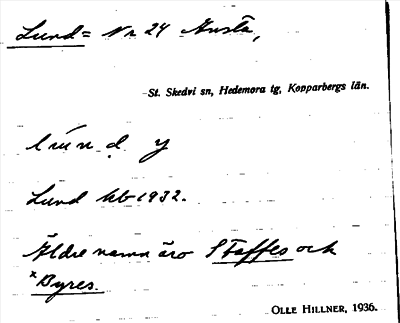 Lund = Nr 24 Gusta,
St. Skedvi sn, Hedemora tg, Kopparbergs län.
lund y
Lund kb 1932.
Äldre namn äro Staffes och
x Byres.
OLLE HILLNER, 1936.